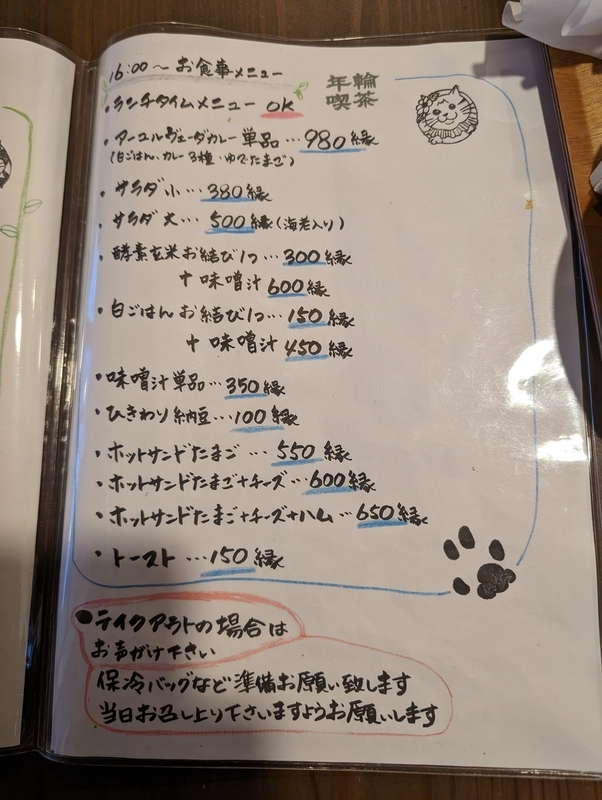 16:00～お食事メニュー
年輪
喫茶
・ランチタイムメニュー OK
・アーユルヴェーダカレー単品…980縁
(白ごはん・カレー3種・ゆでたまご)
・サラダ小…380縁
・サラダ大…500縁(海老入り)
・酵素玄米お結び1つ…300縁
＋味噌汁600縁
・白ごはんお結び1つ…150縁
＋味噌汁450縁
・味噌汁単品…350縁
・ひきわり納豆…100縁
・ホットサンドたまご…550縁
・ホットサンドたまご＋チーズ…600縁
・ホットサンドたまご＋チーズ＋ハム…650縁
・トースト…150縁
●テイクアウトの場合は
お声がけ下さい
保冷バッグなど準備お願い致します
当日お召し上り下さいますようお願いします